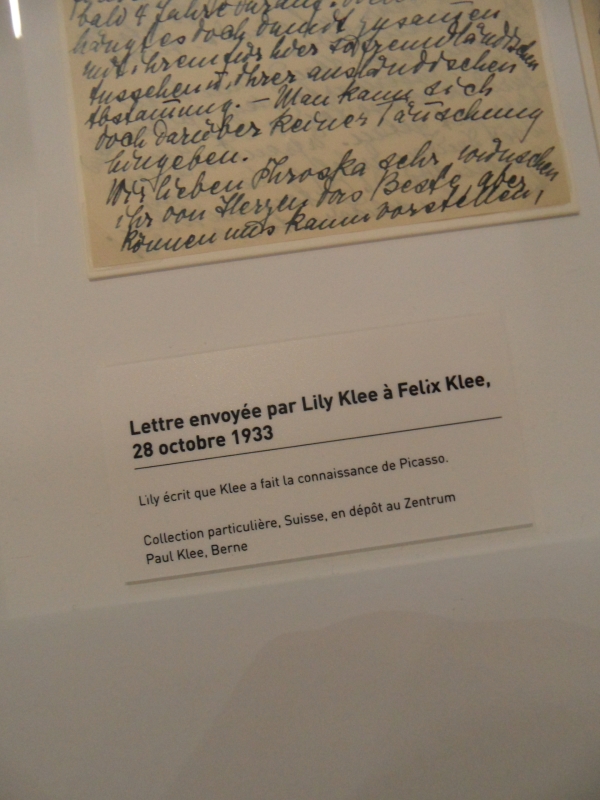 bald 4 Jahre
hängt es doch damit zusammen
mit ihrem für hier so fremdländischen
Aussehen u. ihrer ausländischen
Abstammung. – Man kann sich
doch darüber keiner Täuschung
hingeben.
Wir lieben Phroska sehr, wünschen
ihr von Herzen das Beste, aber
können uns kaum vorstellen,
Lettre envoyée par Lily Klee à Felix Klee,
28 octobre 1933
Lily écrit que Klee a fait la connaissance de Picasso.
Collection particulière, Suisse, en dépôt au Zentrum
Paul Klee, Berne